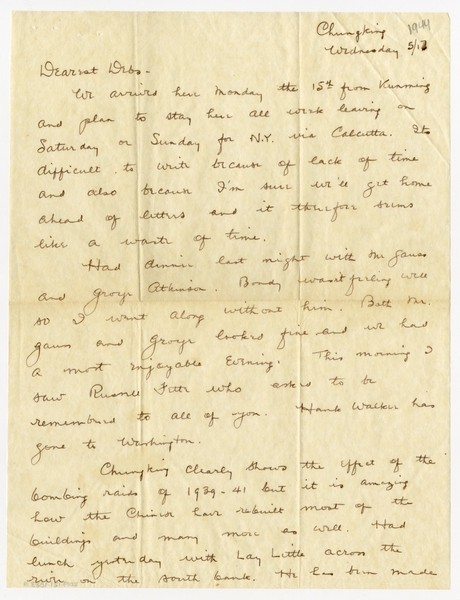 Chungking 1944
Wednesday 5/17
Dearest Debs-
We arrived here Monday the 15th from Kunming
and plan to stay here all week leaving on
Saturday or Sunday for N.Y. via Calcutta. Its
difficult to write because of lack of time
and also because I'm sure we'll get home
ahead of letters and it therefore seems
like a waste of time.
Had dinner last night with Mr Gauss
and George Atkinson. Bondy wasn't feeling well
so I went along without him. Both Mr.
Gauss and George looked fine and we had
a most enjoyable evening. This morning I
saw Russell who asked to be
remembered to all of you. Hank Walker has
gone to Washington.
Chungking clearly shows the effect of the
bombing raids of 1939-41 but it is amazing
how the Chinese have rebuilt most of the
buildings and many more as well. Had
lunch yesterday with Lay Little across the
river on the south bank. He has been made